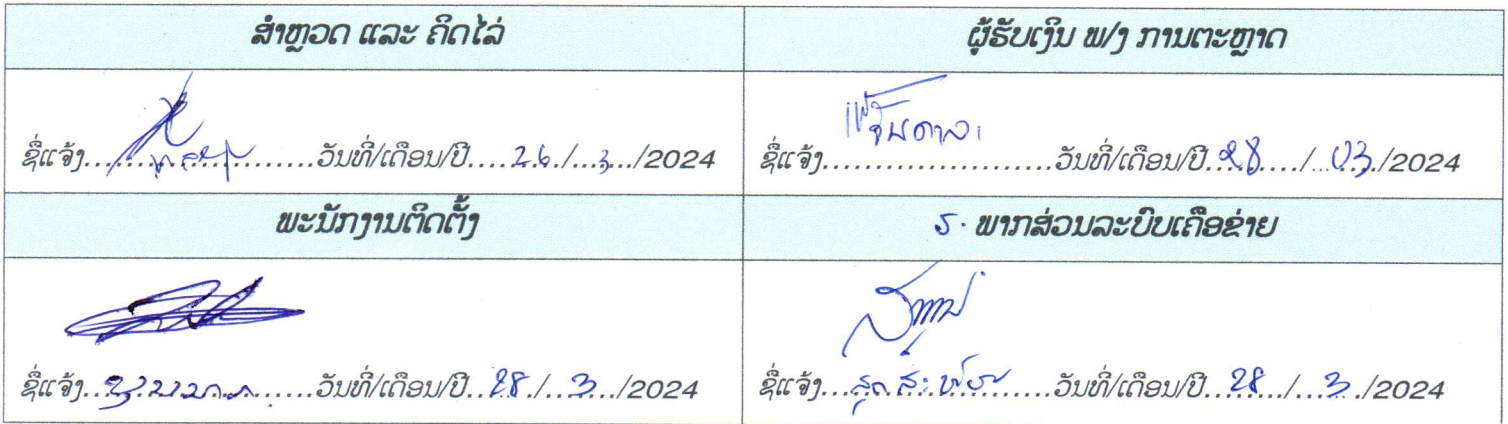 ສຳຫຼວດ ແລະ ຄິດໄລ່
ຜູ້ຮັບເງິນ ພ/ງ ການຕະຫຼາດ
ຊື່ແຈ້ງ......................ວັນທີ່/ເດືອນ/ປີ....26./...3.../2024
ຊື່ແຈ້ງ......................ວັນທີ່/ເດືອນ/ປີ.28..../...03./2024
ພະນັກງານຕິດຕັ້ງ
ຮ. ພາກສ່ວນລະບົບເຄືອຂ່າຍ
ຊື່ແຈ້ງ......................ວັນທີ່/ເດືອນ/ປີ..28./..3.../2024
ຊື່ແຈ້ງ......................ວັນທີ່/ເດືອນ/ປີ..28..../...3./2024